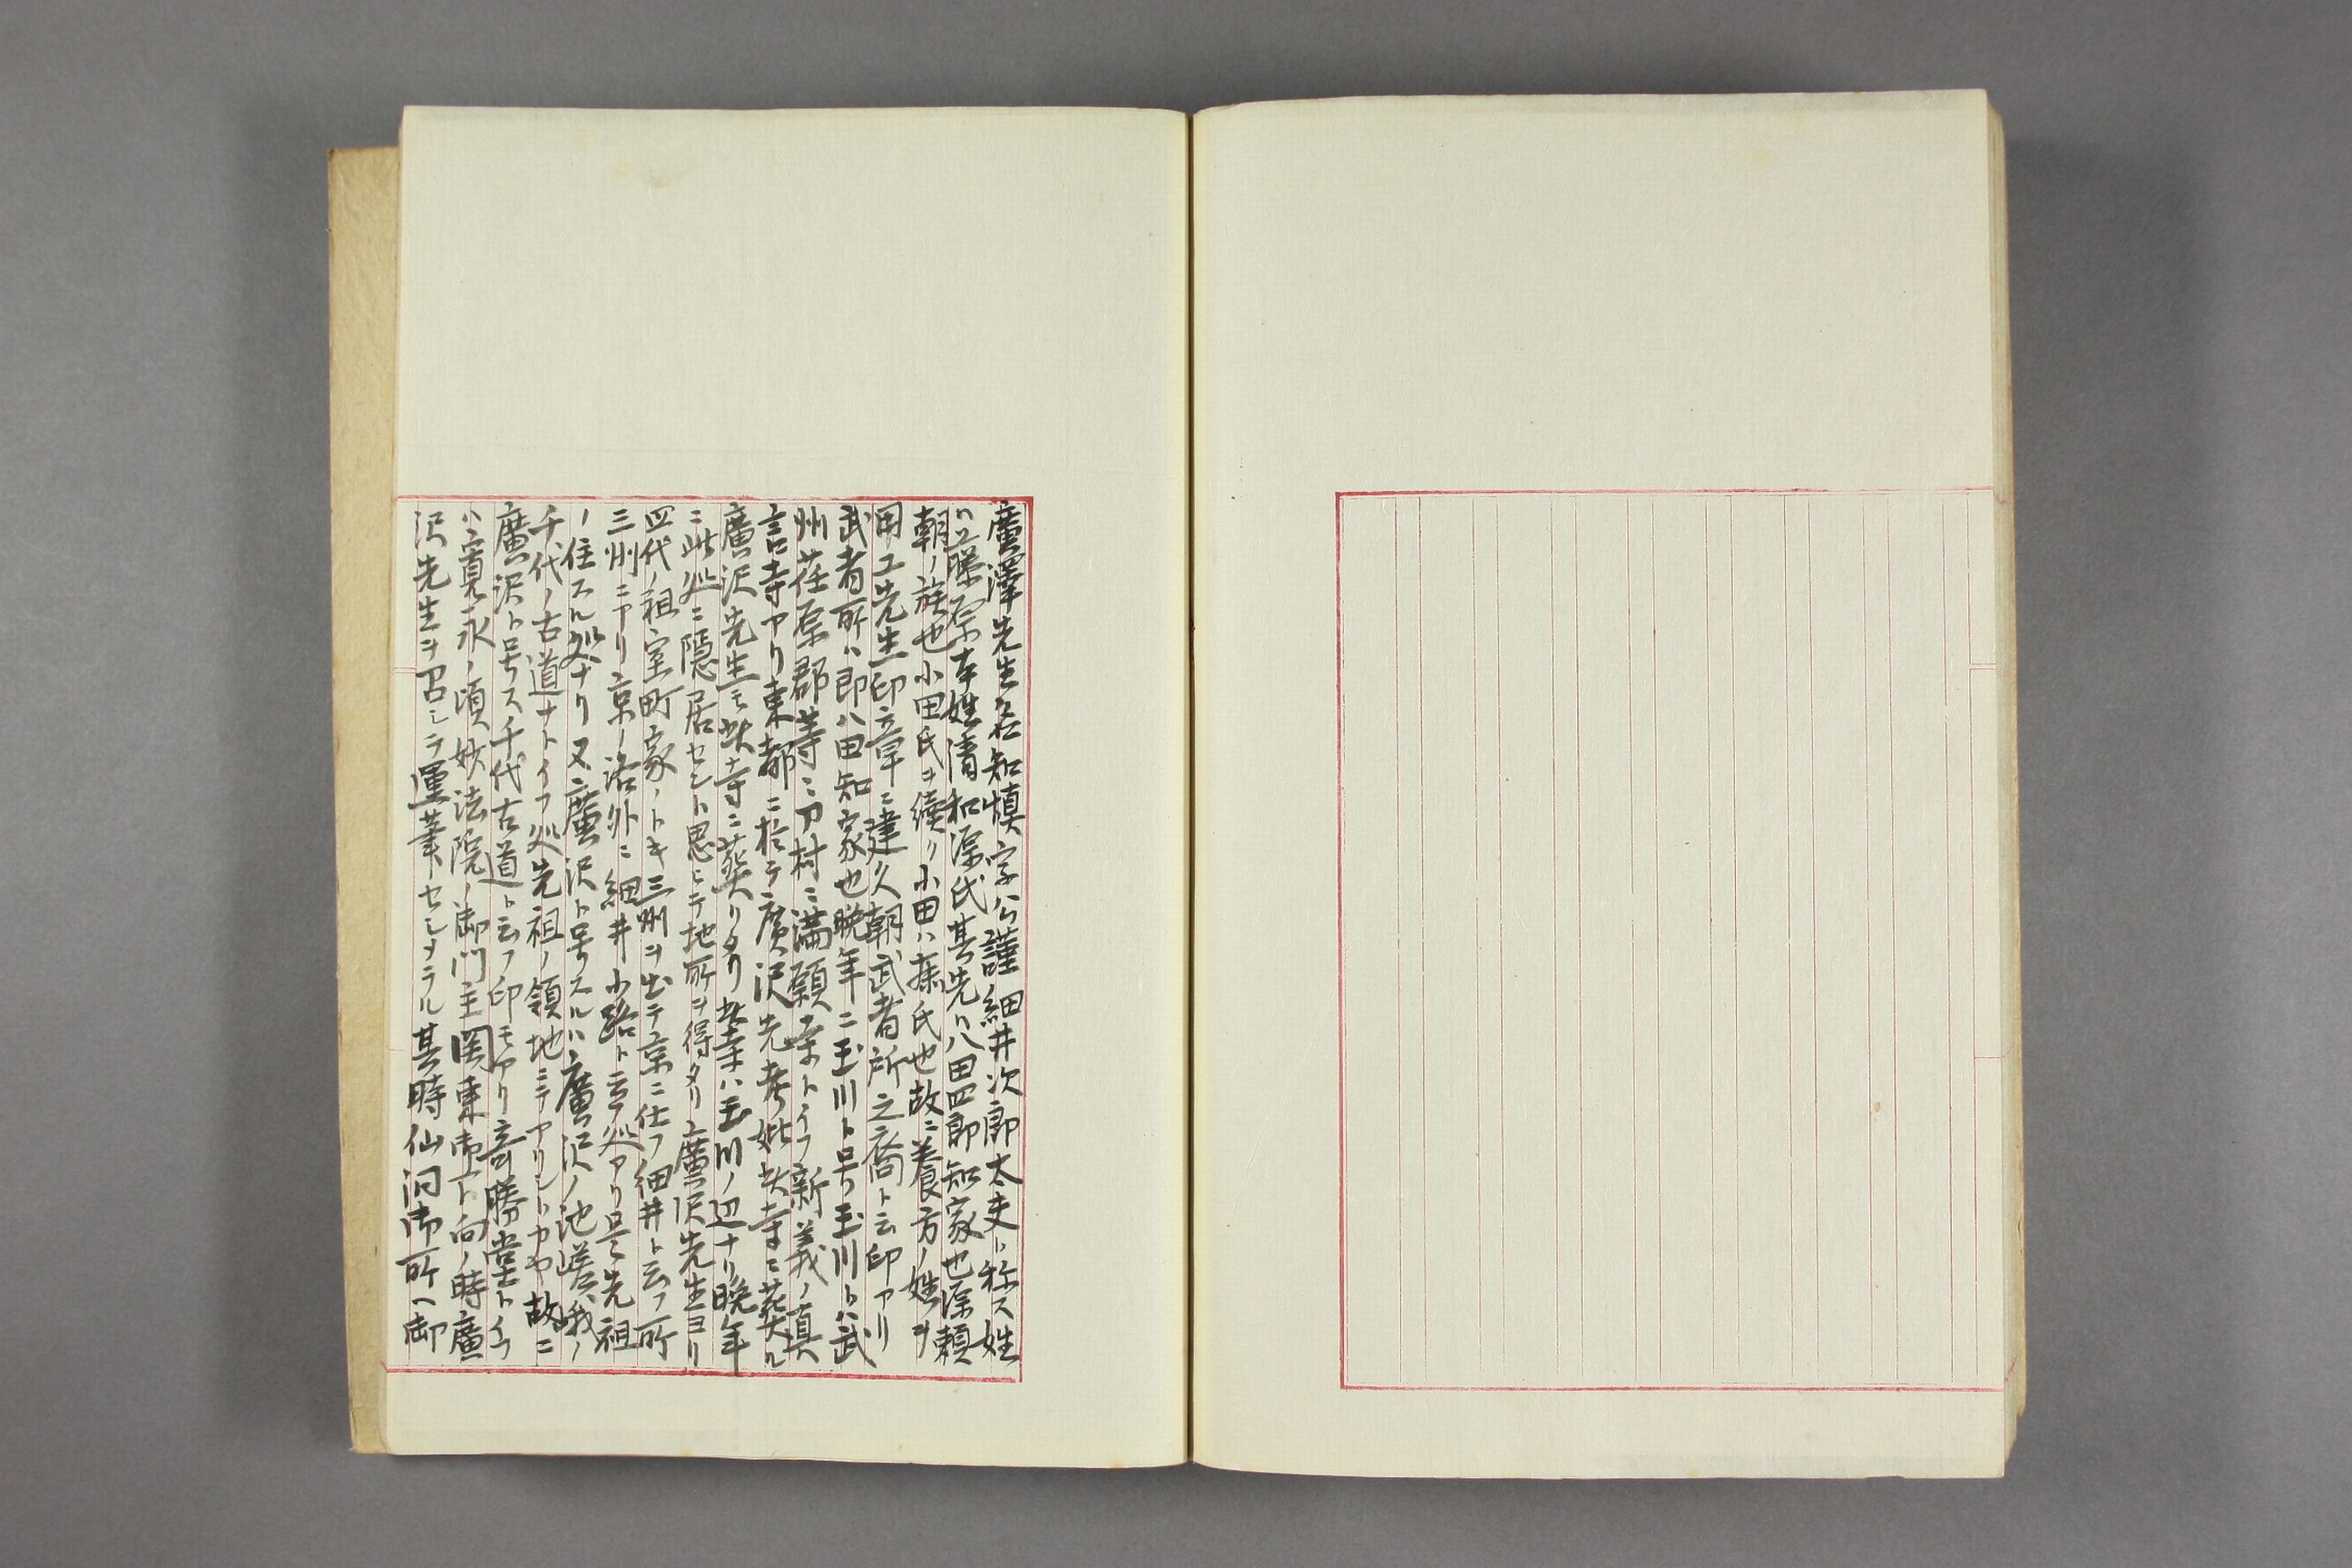 廣澤先生名知慎字公謹細井次郎太夫ト称ス姓
ハ工藤原本姓清和源氏其先ハ八田四郎知家也源頼
朝ノ族也小田氏ヲ續ク小田ハ藤氏也故ニ養方ノ姓ヲ
用ユ先生印章ニ建久朝武者所之裔ト云印アリ
武者所ハ即八田知家也晩年ニ玉川ト号ク玉川トハ武
州荏原郡等々力村ニ満願寺トイフ新義ノ真
言寺アリ東都ニ於テ廣沢先考妣此寺ニ葬ル
廣沢先生モ此寺ニ葬リタリ此寺ハ玉川ノ辺ナリ晩年
ニ此処ニ隠居セント思ヒテ地所ヲ得タリ廣沢先生ヨリ
四代ノ祖室町家ノトキ三州ヲ出テ京ニ仕フ細井ト云フ所
三州ニアリ京ノ洛外ニ細井小路ト云フ処アリ是先祖
ノ住スル処ナリ又廣沢ト号スルハ廣沢ノ池嵯峨ノ
千代ノ古道ナトイフ処先祖ノ領地ニテアリシトカヤ故ニ
廣沢ト号ス千代古道ト云フ印モアリ奇勝堂トイフ
ハ寛永ノ頃妙法院ノ御門主関東御下向ノ時廣
沢先生ヲ召シテ運筆セシメラル其時仙洞御所ヘ御